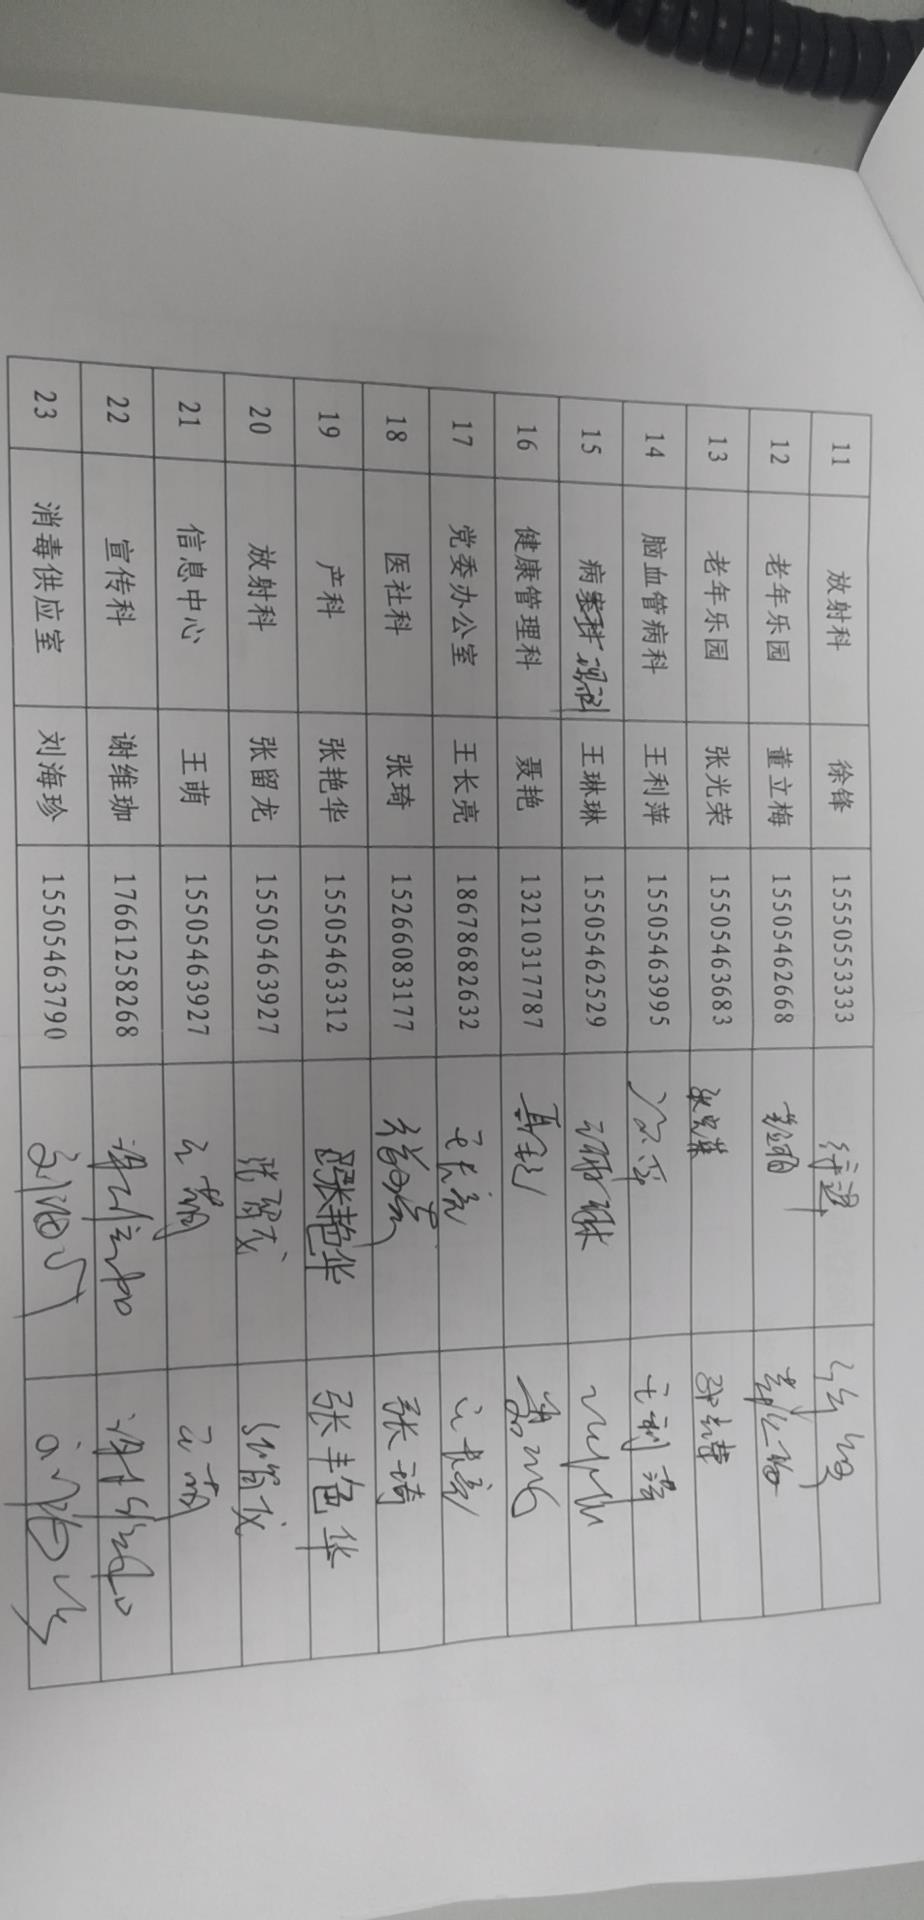 11 放射科 徐锋 15550553333
12 老年乐园 董立梅 15505462668
13 老年乐园 张光荣 15505463683 张光荣
14 脑血管病科 王利萍 15505463995 王利萍
15 病案 王琳琳 15505462529
16 健康管理科 聂艳 13210317787
17 党委办公室 王长亮 18678682632 王长亮 王长亮
18 医社科 张琦 15266083177 张琦
19 产科 张艳华 15505463312 张艳华 张艳华
20 放射科 张留龙 15505463927 张留龙 张留龙
21 信息中心 王萌 15505463927 王萌 王萌
22 宣传科 谢维珈 17661258268
23 消毒供应室 刘海珍 15505463790